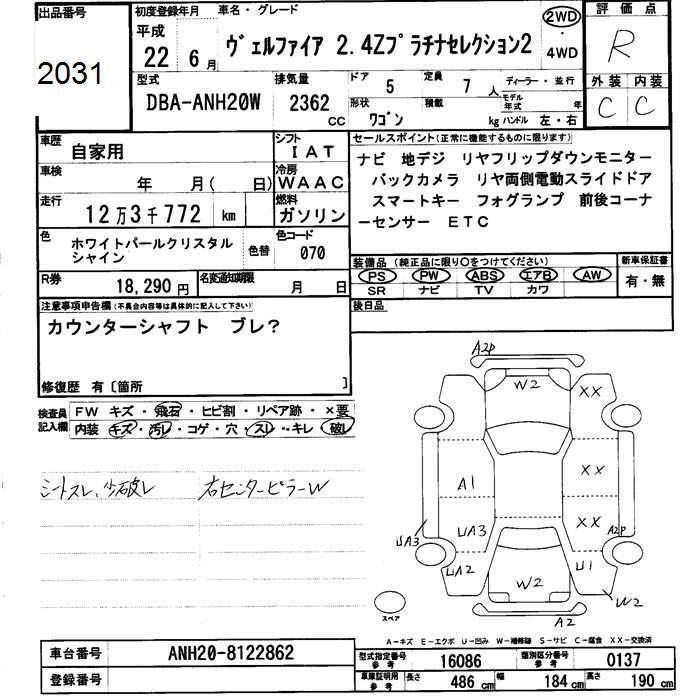 出品番号
2031
初度登録年月
車名・グレード
平成
22 6月
ヴェルファイア 2.4Zプラチナセレクション2
2WD
・
4WD
評価点
R
外装 内装
C C
型式
DBA-ANH20W
排気量
2362 cc
ドア 5
定員 7人
形状 ワゴン
積載 kg
ディーラー・並行
モデル年式 年
ハンドル 左・右
車歴
自家用
シフト
IAT
車検
年 月( 日)
冷房
WAAC
走行
12万3千772 km
燃料
ガソリン
色
ホワイトパールクリスタル
シャイン
色替
色コード
070
R券
18,290円
名変通知期限
月 日
セールスポイント(正常に機能するものに限ります)
ナビ 地デジ リヤフリップダウンモニター
バックカメラ リヤ両側電動スライドドア
スマートキー フォグランプ 前後コーナ
ーセンサー ETC
装備品 (純正品に限り○をつけてください)
PS PW ABS エアB AW
SR ナビ TV カワ
新車保証書
有・無
後日品
注意事項申告欄(不具合内容等は具体的に記入して下さい)
カウンターシャフト ブレ?
修復歴 有〔箇所 〕
検査員
記入欄
FW キズ・飛石・ヒビ割・リペア跡・×要
内装 キズ・汚レ・コゲ・穴・スレ・キレ・破レ
シートスレ、少破レ
右センターピラーW
A2P
W2
XX
A1
XX
UA3
XX
A2P
UA3
UA2
W2
U1
W2
A2
スペア
A-キズ E-エクボ U-凹み W-補修跡 S-サビ C-腐食 XX-交換済
車台番号
ANH20-8122862
登録番号
型式指定番号
参考
16086
類別区分番号
参考
0137
車庫証明用
参考
長さ 486cm
幅 184cm
高さ 190cm